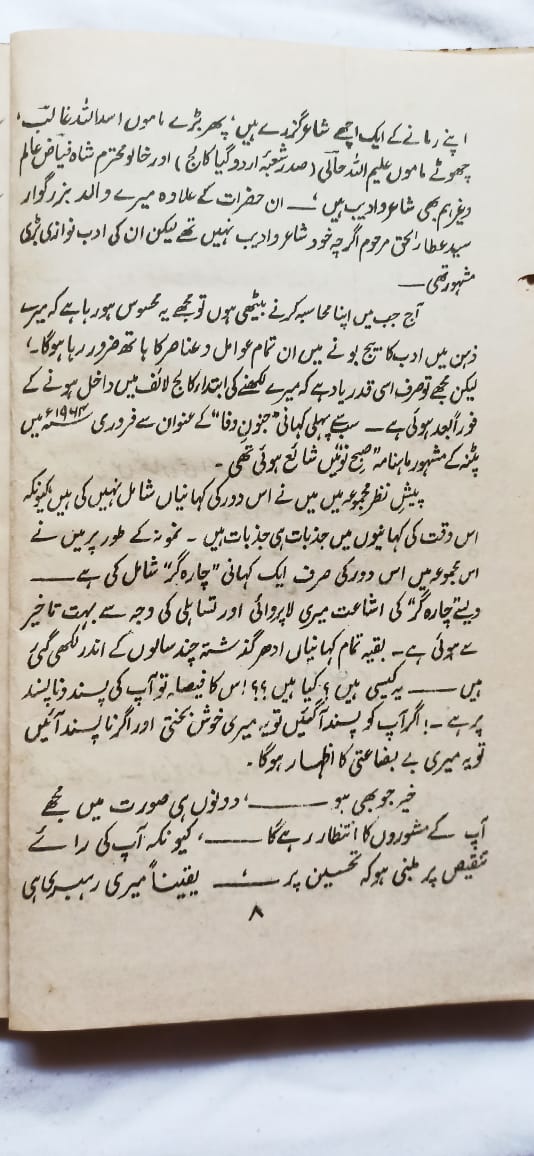 اپنے زمانے کے ایک اچھے شاعر گزرے ہیں، پھر بڑے ماموں اسد اللہ غالبؔ،
چھوٹے ماموں علیم اللہ حالیؔ (صدر شعبۂ اردو گیا کالج) اور خالو محترم شاہ فیاض عالم
دیغراہم بھی شاعر و ادیب ہیں، — ان حضرات کے علاوہ میرے والد بزرگوار
سید عطار الحق مرحوم اگرچہ خود شاعر و ادیب نہیں تھے لیکن ان کی ادب نوازی بڑی
مشہور تھی —
آج جب میں اپنا محاسبہ کرنے بیٹھی ہوں تو مجھے یہ محسوس ہو رہا ہے کہ میرے
ذہن میں ادب کا بیج بونے میں ان تمام عوامل و عناصر کا ہاتھ ضرور رہا ہوگا۔،
لیکن مجھے تو صرف اسی قدر یاد ہے کہ میرے لکھنے کی ابتدا، کالج لائف میں داخل ہونے کے
فوراً بعد ہوئی ہے — سب سے پہلی کہانی "جنونِ وفا" کے عنوان سے فروری ۱۹۶۳ء میں
پٹنہ کے مشہور ماہنامہ "صبح نو" میں شائع ہوئی تھی۔
پیشِ نظر مجموعہ میں میں نے اس دور کی کہانیاں شامل نہیں کی ہیں کیونکہ
اس وقت کی کہانیوں میں جذبات ہی جذبات ہیں۔ نمونہ کے طور پر میں نے
اس مجموعہ میں اس دور کی صرف ایک کہانی "چارہ گر" شامل کی ہے —
ویسے چارہ گر" کی اشاعت میری لاپروائی اور تساہلی کی وجہ سے بہت تاخیر
سے ہوئی ہے۔ بقیہ تمام کہانیاں ادھر گذشتہ چند سالوں کے اندر لکھی گئی
ہیں — یہ کیسی ہیں؟ کیا ہیں؟؟! اس کا فیصلہ تو آپ کی پسند و ناپسند
پر ہے۔! اگر آپ کو پسند آ گئیں تو یہ میری خوش بختی اور اگر ناپسند آئیں
تو یہ میری بے بضاعتی کا اظہار ہوگا۔
خیر جو بھی ہو —، دونوں ہی صورت میں مجھے
آپ کے مشوروں کا انتظار رہے گا —، کیونکہ آپ کی رائے
تنقیص پر مبنی ہو کہ تحسین پر —، یقیناً میری رہبری ہی
۸